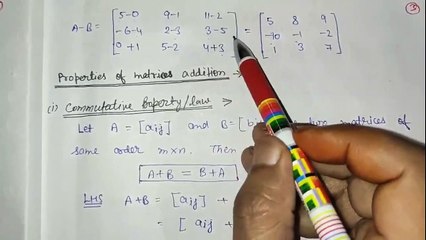 A-B = [ 5-0 9-1 11-2 ] = [ 5 8 9 ]
[ -6-4 2-3 3-5 ] [ -10 -1 -2 ]
[ 0+1 5-2 4+3 ] [ 1 3 7 ]
Properties of matrices addition →
(i) Commutative Property/law ⇒
Let A = [aij] and B = [b two matrices of
same order m×n. Then
A+B = B+A
LHS A+B = [aij] +
= [ aij +